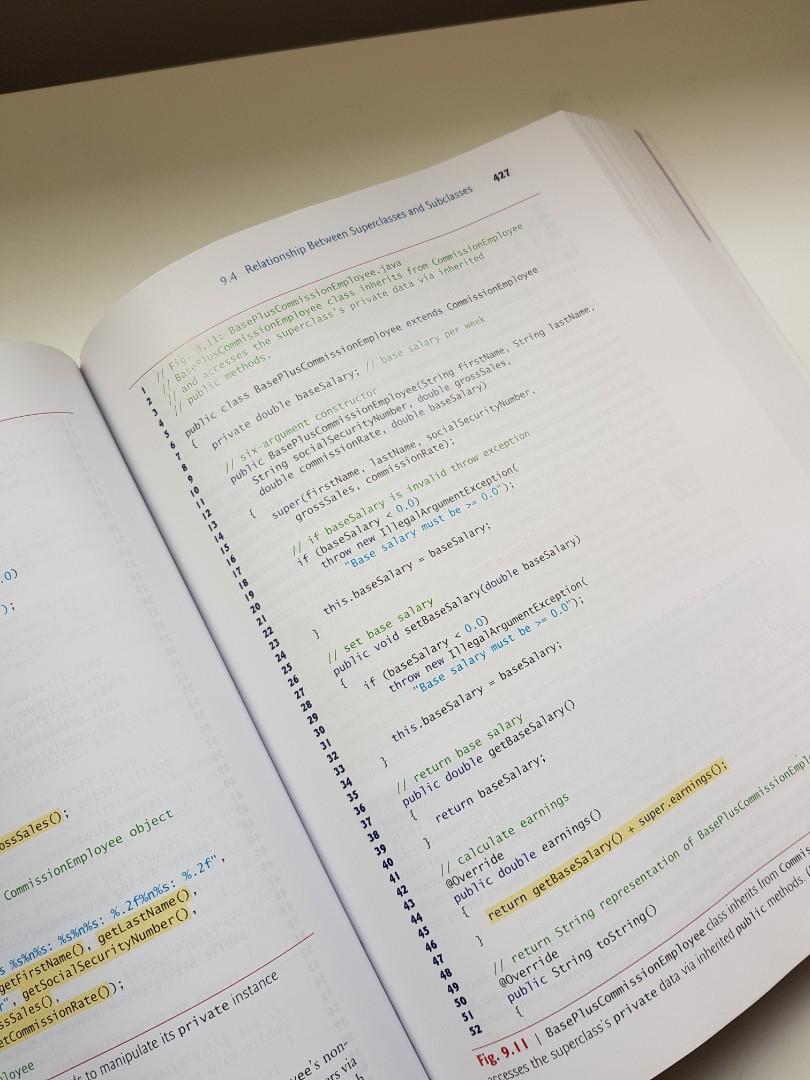 .0)
);
ossSales();
CommissionEmployee object
s %s%n%s: %s%n%s: %.2f%n%s: %.2f",
getFirstName(), getLastName(),
r", getSocialSecurityNumber(),
ssSales(),
etCommissionRate());
ds to manipulate its private instance
loyee
yee's non-
rs via
9.4 Relationship Between Superclasses and Subclasses 427
1 // Fig. 9.11: BasePlusCommissionEmployee.java
2 // BasePlusCommissionEmployee class inherits from CommissionEmployee
3 // and accesses the superclass's private data via inherited
4 // public methods.
5
6 public class BasePlusCommissionEmployee extends CommissionEmployee
7 {
8 private double baseSalary; // base salary per week
9
10 // six-argument constructor
11 public BasePlusCommissionEmployee(String firstName, String lastName,
12 String socialSecurityNumber, double grossSales,
13 double commissionRate, double baseSalary)
14 {
15 super(firstName, lastName, socialSecurityNumber,
16 grossSales, commissionRate);
17
18 // if baseSalary is invalid throw exception
19 if (baseSalary < 0.0)
20 throw new IllegalArgumentException(
21 "Base salary must be >= 0.0");
22
23 this.baseSalary = baseSalary;
24 }
25
26 // set base salary
27 public void setBaseSalary(double baseSalary)
28 {
29 if (baseSalary < 0.0)
30 throw new IllegalArgumentException(
31 "Base salary must be >= 0.0");
32
33 this.baseSalary = baseSalary;
34 }
35
36 // return base salary
37 public double getBaseSalary()
38 {
39 return baseSalary;
40 }
41
42 // calculate earnings
43 @Override
44 public double earnings()
45 {
46 return getBaseSalary() + super.earnings();
47 }
48
49 // return String representation of BasePlusCommissionEmpl
50 @Override
51 public String toString()
52 {
Fig. 9.11 | BasePlusCommissionEmployee class inherits from Commis
accesses the superclass's private data via inherited public methods. (